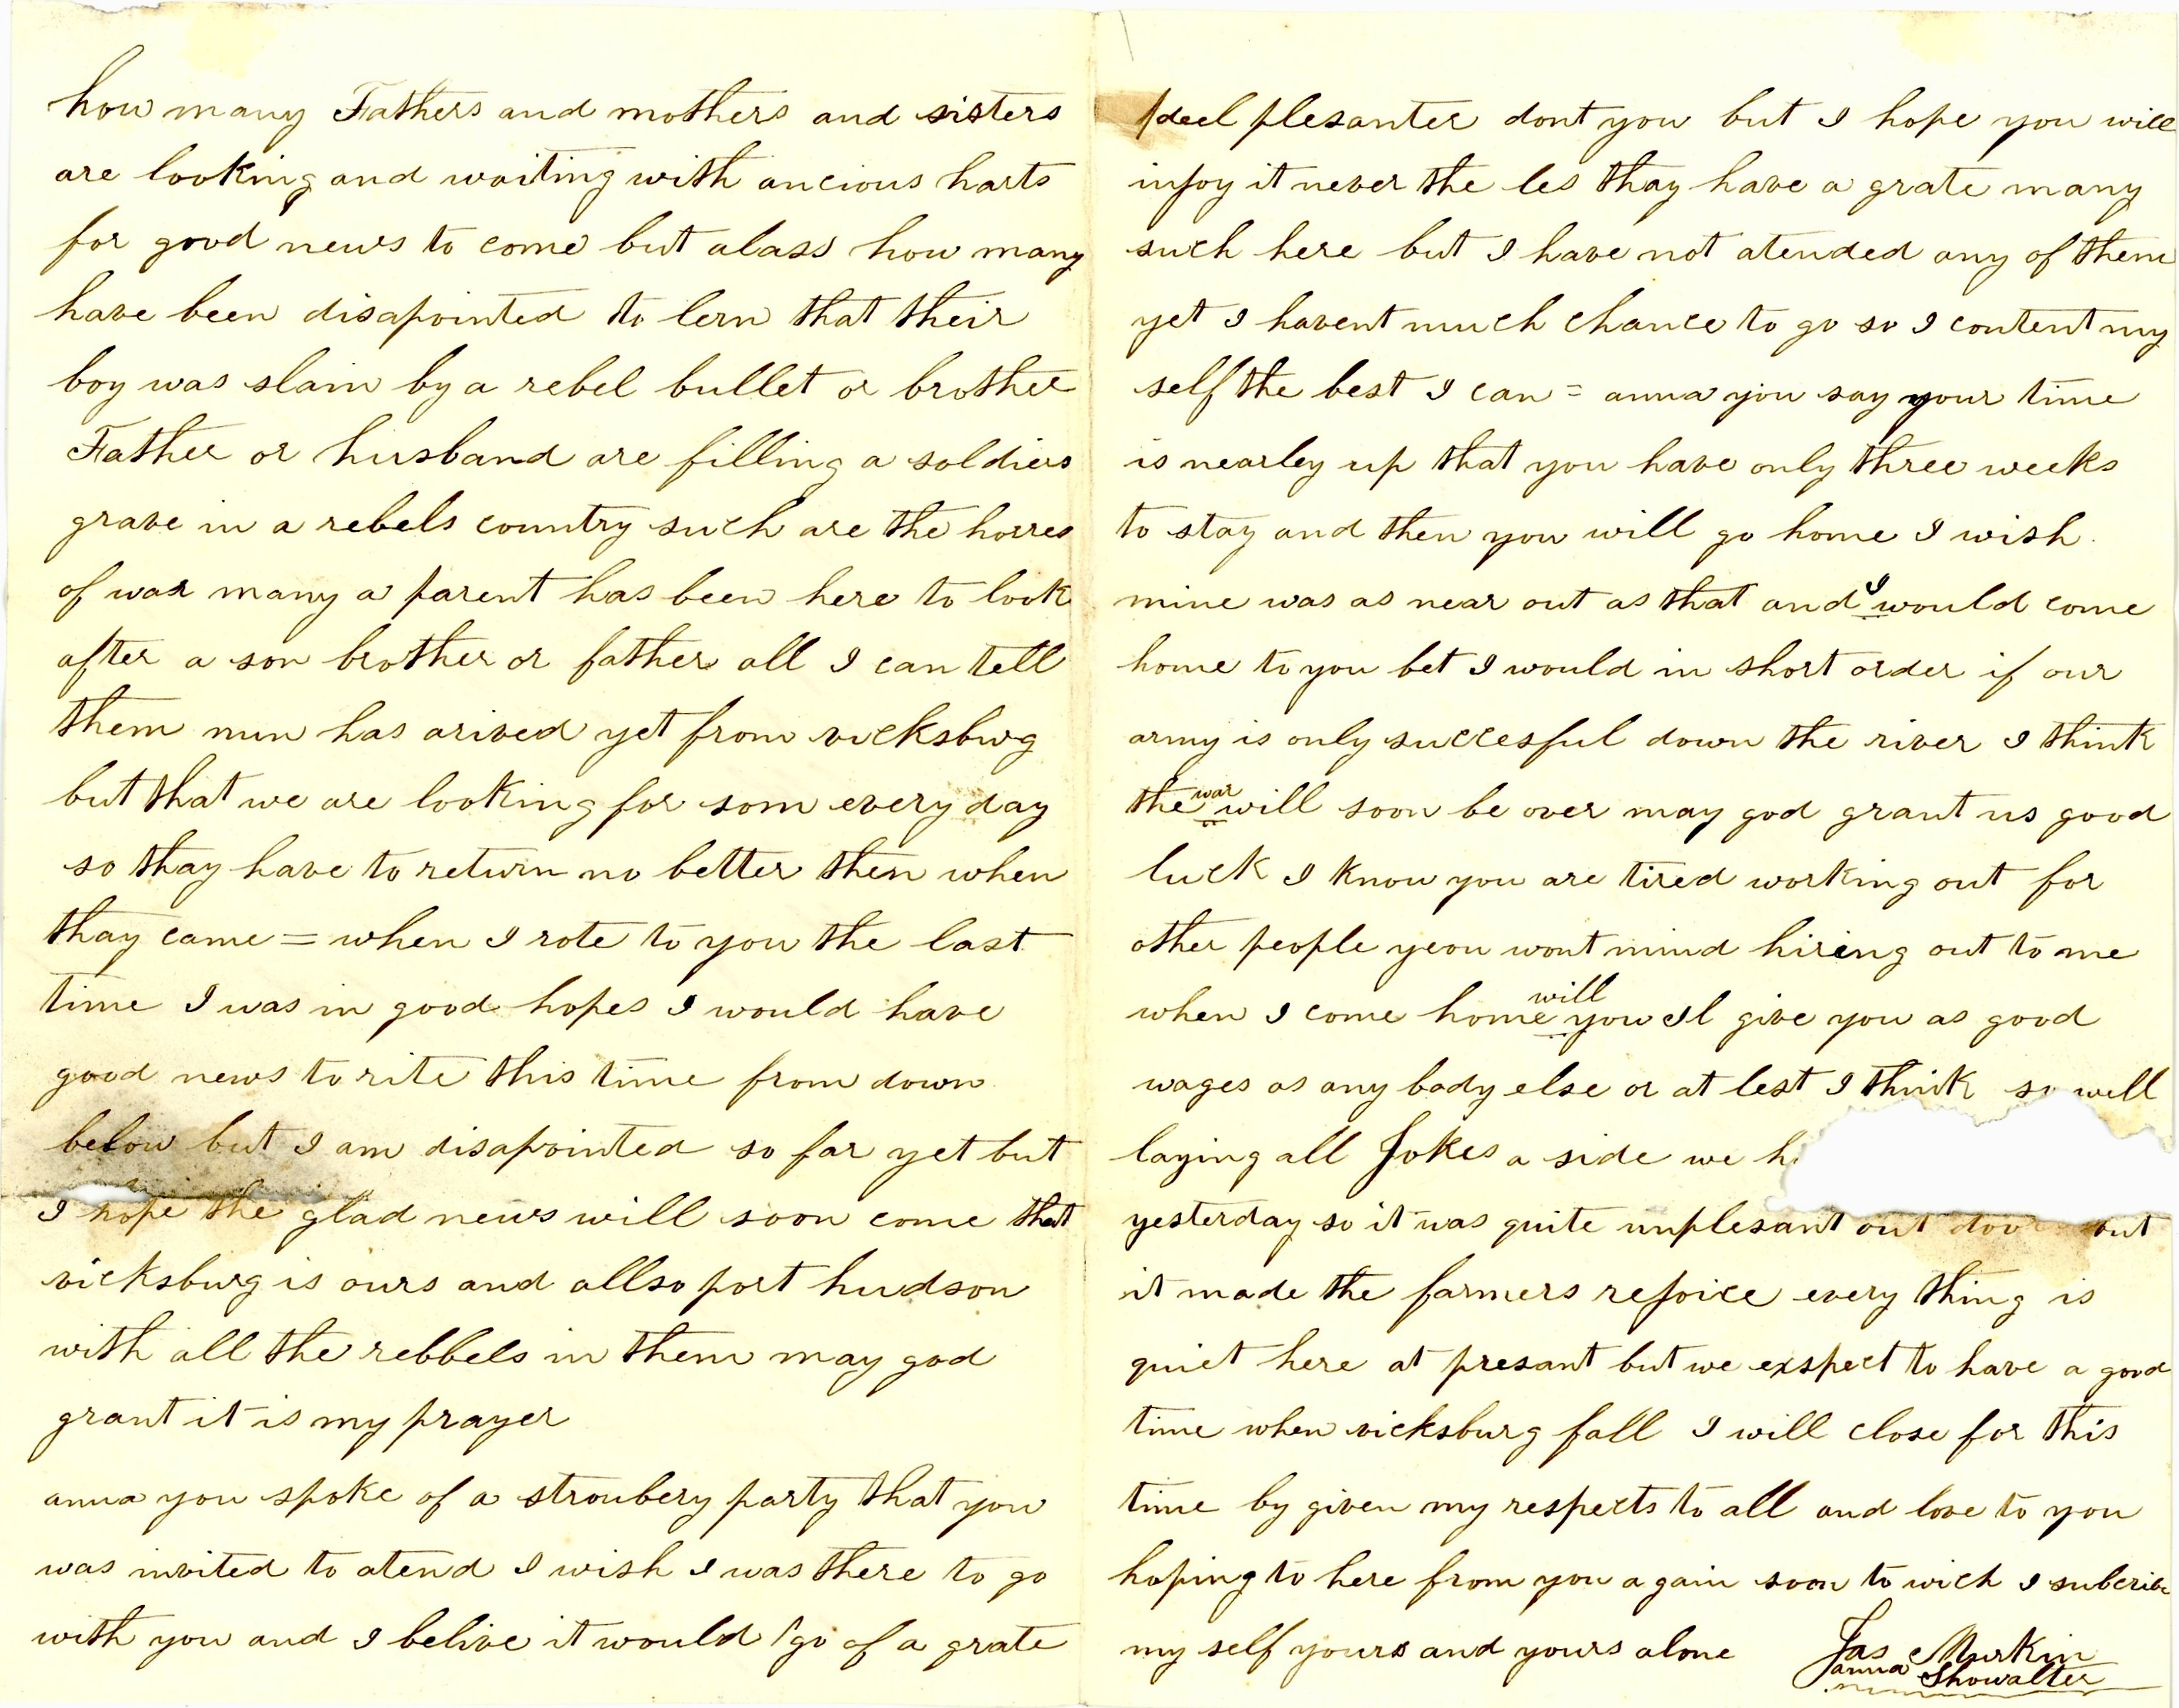 how many Fathers and mothers and sisters
are looking and waiting with ancious harts
for good news to come but alass how many
have been disapointed to lern that their
boy was slain by a rebel bullet or brother
Father or husband are filling a soldiers
grave in a rebels country such are the horres
of war many a parent has been here to look
after a son brother or father all I can tell
them nun has arived yet from vicksburg
but that we are looking for som every day
so thay have to return no better then when
thay came = when I rote to you the last
time I was in good hopes I would have
good news to rite this time from down
below but I am disapointed so far yet but
I hope the glad news will soon come that
vicksburg is ours and allso port hudson
with all the rebbels in them may god
grant it is my prayer
anna you spoke of a stroubery party that you
was invited to atend I wish I was there to go
with you and I belive it would go of a grate
deel plesanter dont you but I hope you will
injoy it never the les thay have a grate many
such here but I have not atended any of them
yet I havent much chance to go so I content my
self the best I can = anna you say your time
is nearley up that you have only three weeks
to stay and then you will go home I wish
mine was as near out as that and I would come
home to you bet I would in short order if our
army is only succesful down the river I think
the war will soon be over may god grant us good
luck I know you are tired working out for
other people yeou wont mind hireing out to me
when I come home will you Il give you as good
wages as any body else or at lest I think so well
laying all Jokes a side we
yesterday so it was quite unplesant out door but
it made the farmers rejoice every thing is
quiet here at presant but we exspect to have a good
time when vicksburg fall I will close for this
time by given my respects to all and love to you
hoping to here from you again soon to wich I subcribe
my self yours and yours alone Jas Murkin
anna Showalter